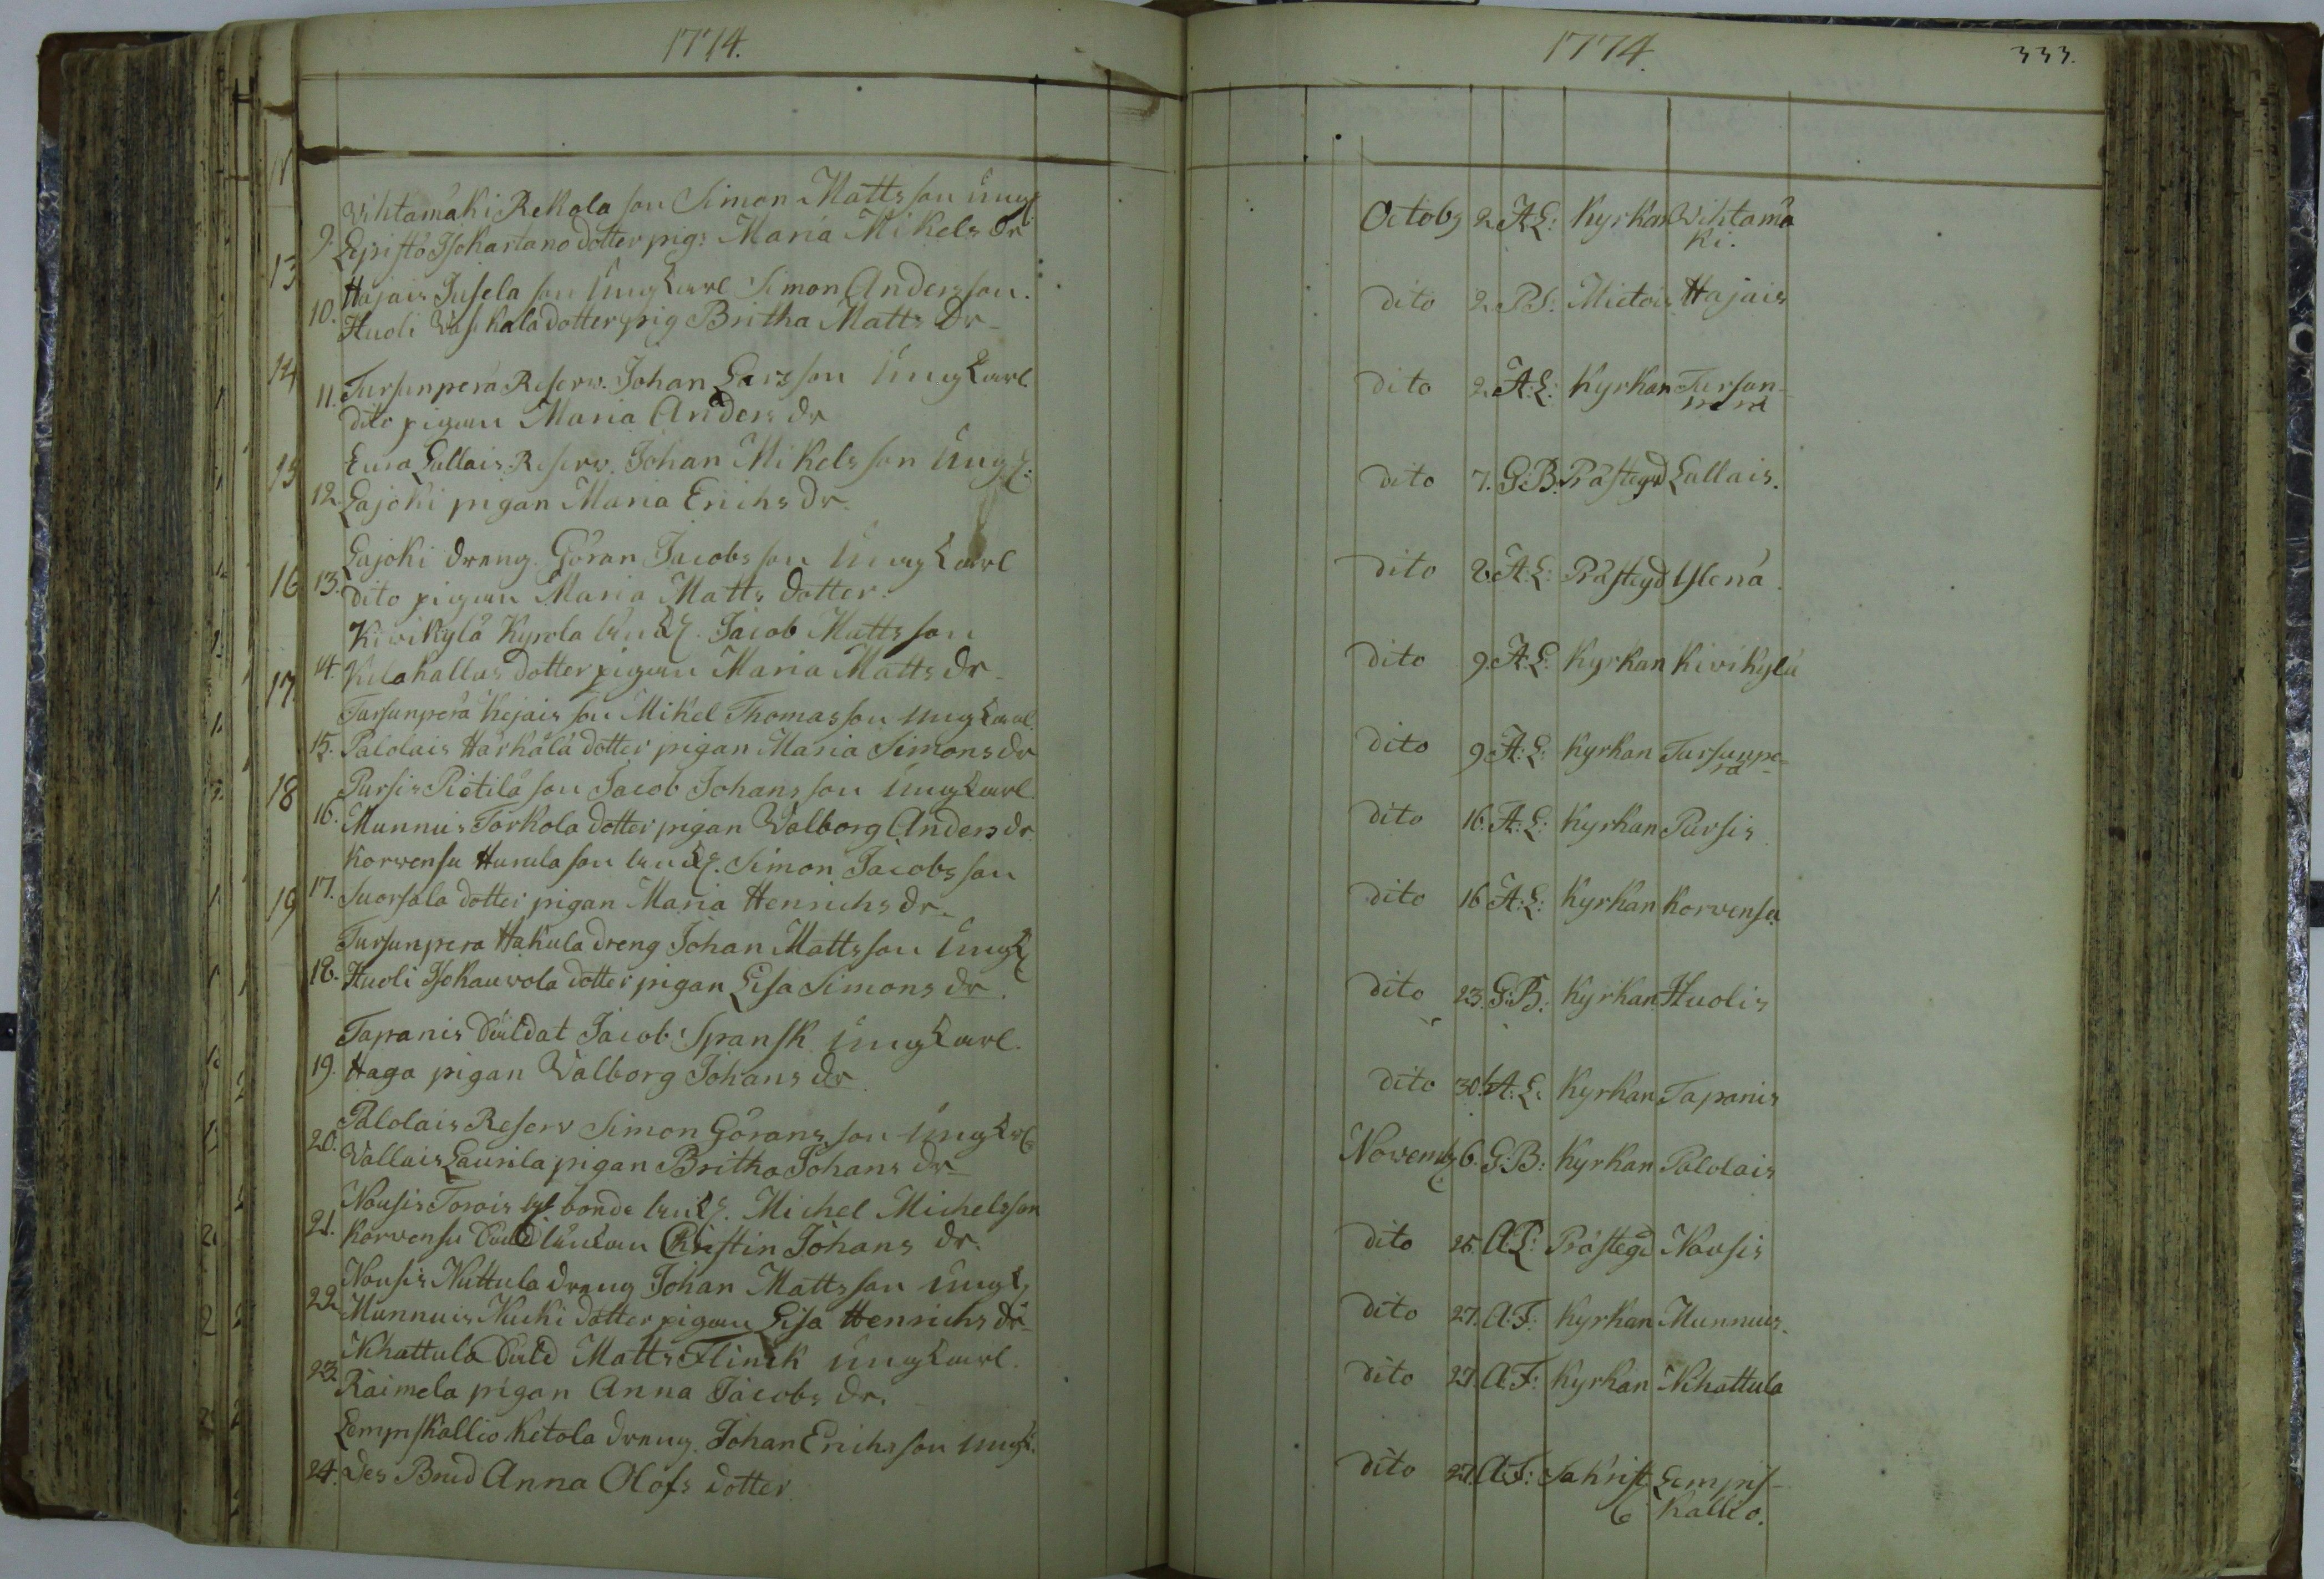 1774.
Vihtamäki Rekola son Simon Mattsson ungk
9. Lepistö Isokartano dotter pig: Maria Mikels Dr
Hajais Jusela son Ungkarl Simon Andersson.
10. Huoli dotter pig Britha Matts Dr
Tursunperä Reserv. Johan Larsson Ungkarl
11. dito pigan Maria Anders dr
Eura Lallais Reserv. Johan Mikelsson Ungk:
12. Lajoki pigan Maria Erichs Dr.
Lajoki dreng Göran Jacobsson Ungkarl
13. dito pigan Maria Matts dotter.
Kivikylä Kyrola Jacob Mattsson
14. Kulakallas dotter pigan Maria Matts dr
Tursunperä Kejais son Mikel Thomasson Ungkarl.
15. Palolais Härkälä dotter pigan Maria Simons dr
Pursis Piötilä son Jacob Johansson Ungkarl.
16. Munnuis Torkola dotter pigan Walborg Anders dr
Korvensu Hurula son Simon Jacobsson
17. Suorsala dotter pigan Maria Henrichs dr
Tursunpera Hakula dreng Johan Mattsson Ungk
18. Huoli Isokauvola dotter pigan Lisa Simons dr.
Tapanis Jacob Spansk Ungkarl.
19. Haga pigan Walborg Johans dr
Palolais Reserv Simon Göransson Ungkarl
20. Vallais Laurila pigan Britha Johans dr
Nousis Torois bonde Michel Michelsson
21. Korvensu Christin Johans dr.
Nousis Nuttula dreng Johan Mattsson Ungk
22. Munnuis Kuki dotter pigan Lisa Henrichs dr
Nihattula Matts Flinck Ungkarl.
23. Raimela pigan Anna Jacobs dr.
Lempskallio Ketola dreng Johan Erichsson Ungk.
24. Des Brud Anna Olofs dotter
13
14
15
16
17
18
19
1774.
333.
Octobr 2 A:L: Kyrkan Vihtamä
ki.
dito 2. Mietois Hajais
dito 2. A:L: Kyrkan Tursun-
dito 7. G:B: Prästegd Lallais.
dito 8. A:L: Prästegd Ylenä.
dito 9. A:L: Kyrkan Kivikylä
dito 9 A:L: Kyrkan Tursunpe-
rä
dito 16. A:L: Kyrkan Pursis
dito 16 A:L: Kyrkan Korvensu
dito 23. G:B: Kyrkan Huolis
dito 30. A:L: Kyrkan Tapanis
Novemb 6. G:B: Kyrkan Palolais
dito 25. A:L: Prästegd Nousis
dito 27. A:F: Kyrkan Munnuis.
dito 27. A:F: Kyrkan Nihattula
dito 27. A:F: Sakrist Lemps-
kallio.